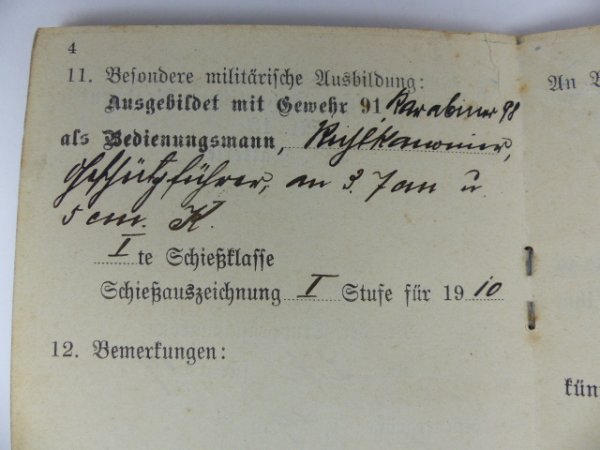 4
11. Besondere militärische Ausbildung:
Ausgebildet mit Gewehr 91 Karabiner 98
als Bedienungsmann, Richtkanonier,
Geschützführer, an 3.7 cm u.
5 cm. K.
I te Schießklasse
Schießauszeichnung I Stufe für 1910
12. Bemerkungen:
An
kün